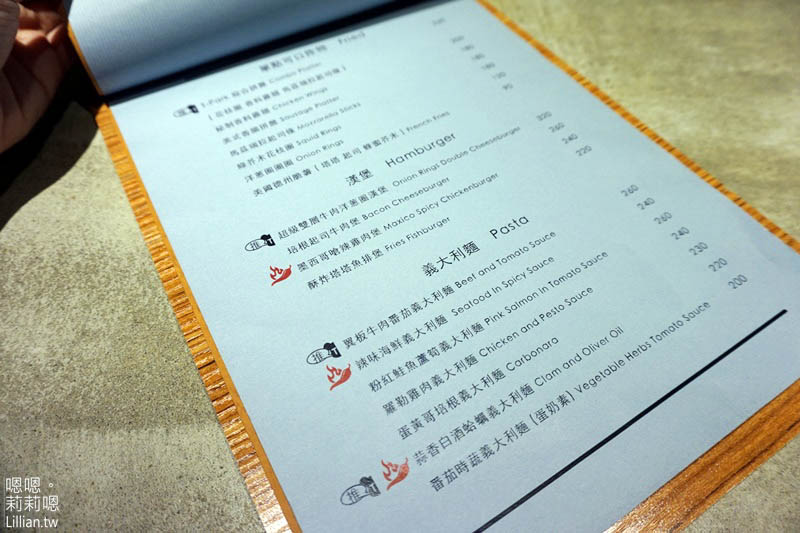 單點可口炸物 Fried
推 T-Park 綜合拼盤 Combo Platter
秘制香料雞翅 Chicken Wings
美式香腸拼盤 Sausage Platter
馬茲瑞拉起司條 Mozzarella Sticks
綠芥末花枝圈 Squid Rings
洋蔥圈圈圈 Onion Rings 90
美國德州脆薯 ( 塔塔 起司 蜂蜜芥末 ) French Fries
漢堡 Hamburger
推 超級雙層牛肉洋蔥圈漢堡 Onion Rings Double Cheeseburger 320
培根起司牛肉堡 Bacon Cheeseburger 260
墨西哥嗆辣雞肉堡 Maxico Spicy Chickenburger 240
酥炸塔塔魚排堡 Fries Fishburger 220
義大利麵 Pasta
推 翼板牛肉番茄義大利麵 Beef and Tomato Sauce 260
辣味海鮮義大利麵 Seafood In Spicy Sauce 240
粉紅鮭魚蘆筍義大利麵 Pink Salmon in Tomato Sauce 260
羅勒雞肉義大利麵 Chicken and Pesto Sauce 240
蛋黃哥培根義大利麵 Carbonara 230
推 蒜香白酒蛤蠣義大利麵 Clam and Oliver Oil 220
番茄時蔬義大利麵 (蛋奶素) Vegetable Herbs Tomato Sauce 200
嗯嗯。
莉莉嗯
Lillian.tw